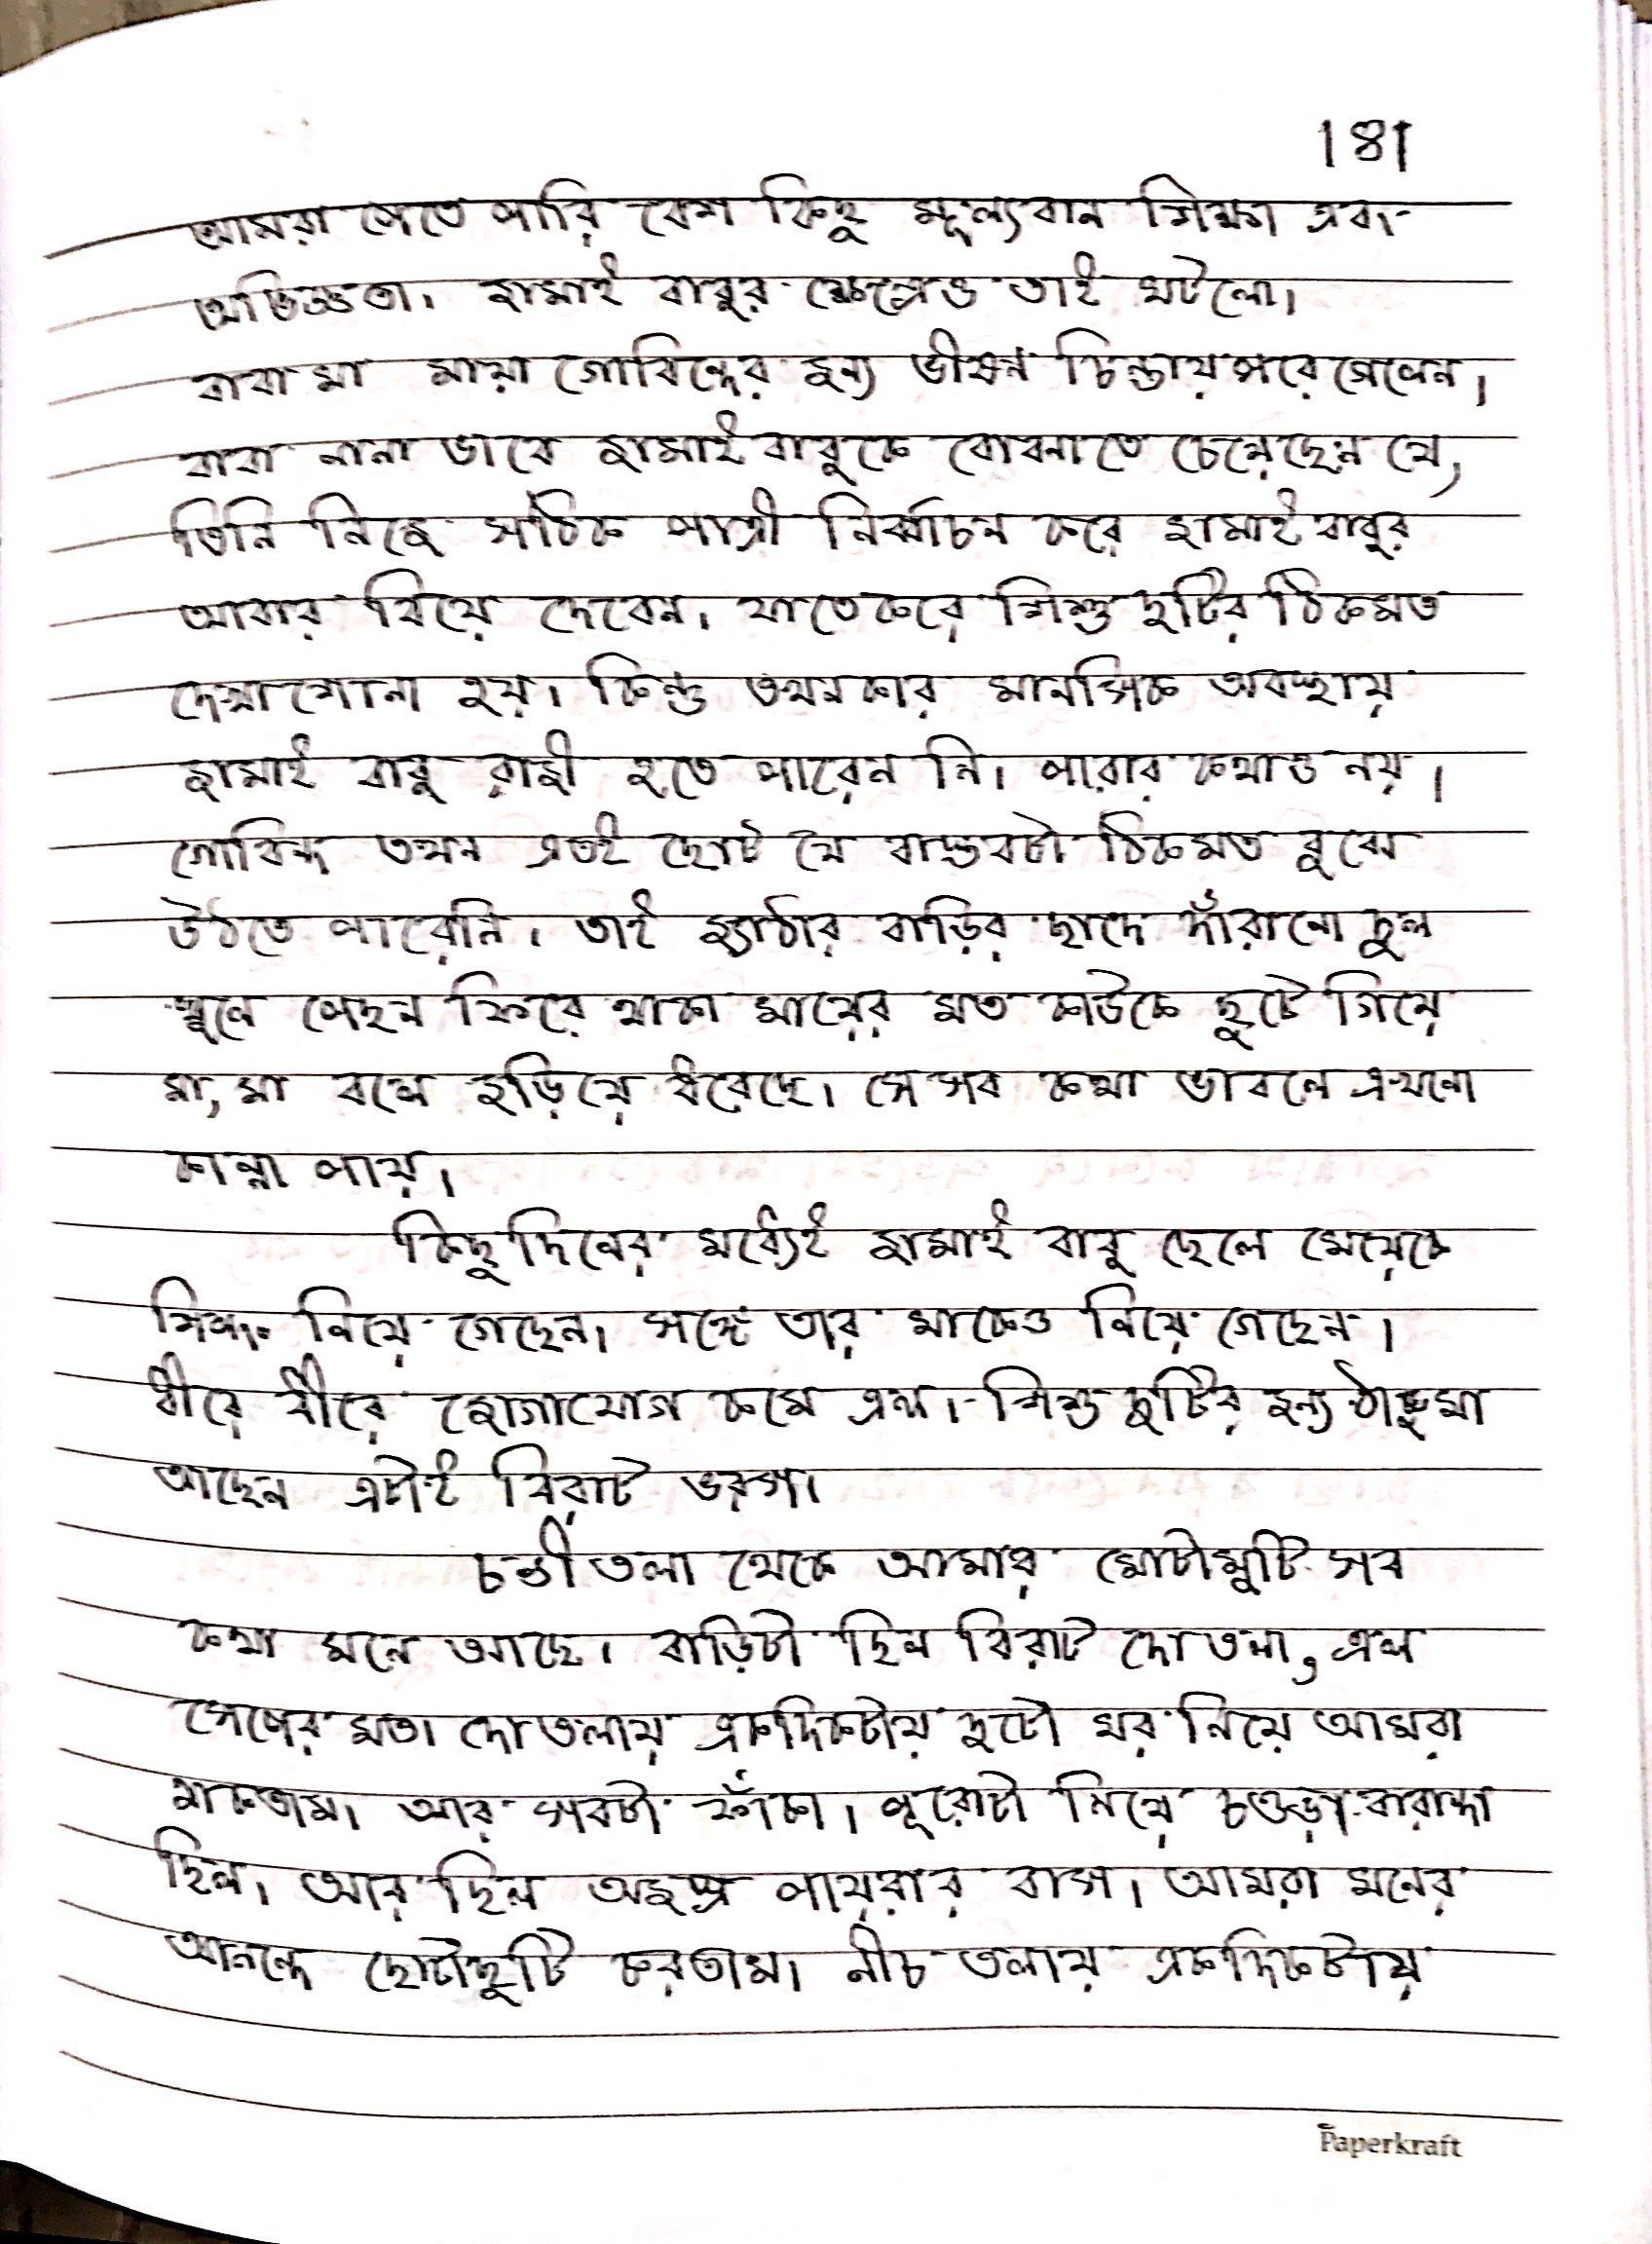 181
আমরা পেতে পারি বেশ কিছু মূল্যবান শিক্ষা এবং
অভিজ্ঞতা। জামাই বাবুর ক্ষেত্রেও তাই ঘটলো।
বাবা মা মায়া গোবিন্দের জন্য ভীষন চিন্তায় পরে গেলেন।
বাবা নানা ভাবে জামাই বাবুকে বোঝাতে চেয়েছেন যে,
তিনি নিজে সঠিক পাত্রী নির্ব্বাচন করে জামাই বাবুর
আবার বিয়ে দেবেন। যাতে করে শিশু দুটির ঠিকমত
দেখাশোনা হয়। কিন্তু তখনকার মানসিক অবস্থায়
জামাই বাবু রাজী হতে পারেন নি। পারার কথাও নয়।
গোবিন্দ তখন এতই ছোট যে বাস্তবটা ঠিকমত বুঝে
উঠতে পারেনি। তাই জ্যাঠার বাড়ির ছাদে দাঁরানো চুল
খুলে পেছন ফিরে থাকা মায়ের মত কাউকে ছুটে গিয়ে
মা, মা বলে জড়িয়ে ধরেছে। সে সব কথা ভাবলে এখনো
কান্না পায়।
কিছু দিনের মধ্যেই জামাই বাবু ছেলে মেয়েকে
নিয়ে গেছেন। সঙ্গে তার মাকেও নিয়ে গেছেন।
ধীরে ধীরে যোগাযোগ কমে এল। শিশু দুটির জন্য ঠাকুমা
আছেন এটাই বিরাট ভরসা।
চন্ডীতলা থেকে আমার মোটামুটি সব
কথা মনে আছে। বাড়িটা ছিল বিরাট দোতলা, এল
সেপের মতো দোতলায় একদিকটায় দুটো ঘর নিয়ে আমরা
থাকতাম। আর সবটা ফাঁকা। পুরোটা নিয়ে চওড়া বারান্দা
ছিল। আর ছিল অজস্র পায়রার বাস। আমরা মনের
আনন্দে ছোটাছুটি করতাম। নীচ তলায় একদিকটায়
Paperkraft